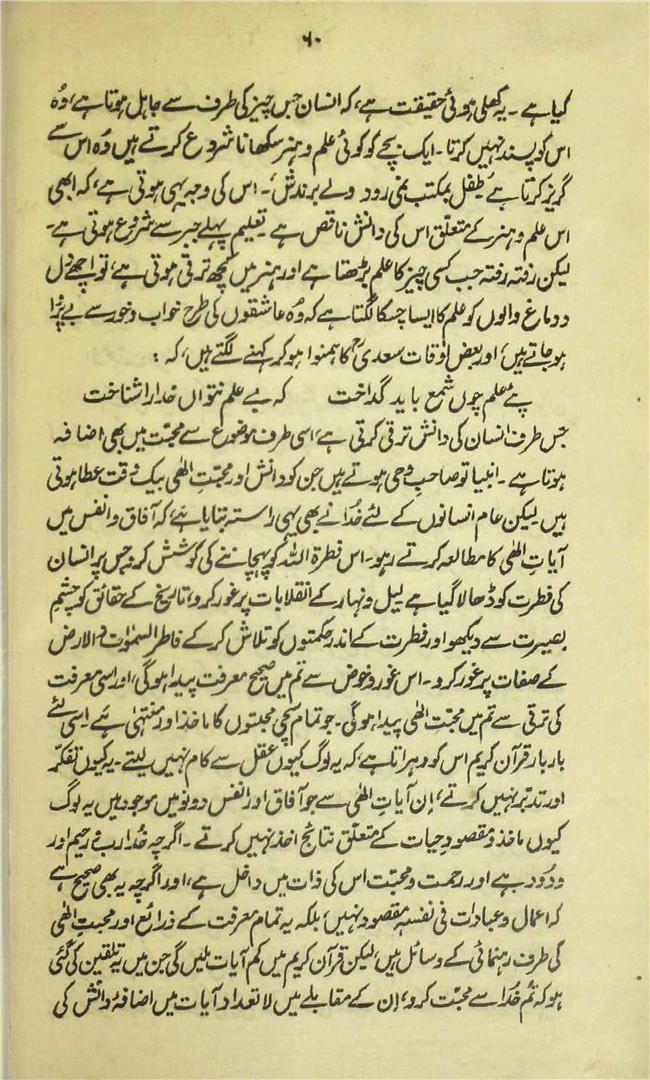 ۶۰
گیا ہے۔ یہ کھلی ہوئی حقیقت ہے، کہ انسان جس چیز کی طرف سے جاہل ہوتا ہے، وُہ
اس کو پسند نہیں کرتا۔ ایک بچے کو کوئی علم و ہنر سکھانا شروع کرتے ہیں وُہ اس سے
گریز کرتا ہے "طفل بمکتب نمی رود ولے برندش"۔ اس کی وجہ یہی ہوتی ہے، کہ ابھی
اس علم و ہنر کے متعلق اس کی دانش ناقص ہے۔ تعلیم پہلے جبر سے شروع ہوتی ہے۔
لیکن رفتہ رفتہ جب کسی چیز کا علم بڑھتا ہے اور ہنر میں کچھ ترقی ہوتی ہے، تو اچھے دل
و دماغ والوں کو علم کا ایسا چسکا لگتا ہے کہ وُہ عاشقوں کی طرح خواب و خور سے بے پروا
ہو جاتے ہیں، اور بعض اوقات سعدیؒ کا ہمنوا ہو کر کہنے لگتے ہیں، کہ :
پئے علم چوں شمع باید گداخت کہ بے علم نتواں خدا را شناخت
جس طرف انسان کی دانش ترقی کرتی ہے، اسی طرف موضوع سے محبّت میں بھی اضافہ
ہوتا ہے۔ انبیا تو صاحبِ وحی ہوتے ہیں جن کو دانش اور محبّتِ الٰھی بیک وقت عطا ہوتی
ہیں۔ لیکن عام انسانوں کے لئے خُدا نے بھی یہی راستہ بتایا ہے، کہ آفاق و انفس میں
آیاتِ الٰھی کا مطالعہ کرتے رہو۔ اس فطرۃ اللہ کو پہچاننے کی کوشش کرو، جس پر انسان
کی فطرت کو ڈھالا گیا ہے۔ لیل و نہار کے انقلابات پر غور کرو، تاریخ کے حقائق کو چشمِ
بصیرت سے دیکھو اور فطرت کے اندر حکمتوں کو تلاش کر کے فاطر السمٰوٰت والارض
کے صفات پر غور کرو۔ اس غور و خوض سے تم میں صحیح معرفت پیدا ہو گی، اور اسی معرفت
کی ترقی سے تم میں محبّتِ الٰھی پیدا ہو گی۔ جو تمام سچی محبتوں کا ماخذ اور منتہیٰ ہے۔ اِسی لئے
بار بار قرآن کریم اس کو دہراتا ہے، کہ یہ لوگ کیوں عقل سے کام نہیں لیتے۔ یہ کیوں تفکّر
اور تدبّر نہیں کرتے، اِن آیاتِ الٰھی سے جو آفاق اور انفس دونو میں موجود ہیں یہ لوگ
کیوں ماخذ و مقصودِ حیات کے متعلّق نتائج اخذ نہیں کرتے۔ اگرچہ خُدا رب رحیم اور
ودُود ہے اور رحمت و محبّت اس کی ذات میں داخل ہے، اور اگرچہ یہ بھی صحیح ہے
کہ اعمال و عبادات فی نفسہٖ مقصود نہیں، بلکہ یہ تمام معرفت کے ذرائع اور محبتِ الٰھی
کی طرف رہنمائی کے وسائل ہیں، لیکن قرآن کریم میں کم آیات ملیں گی جن میں یہ تلقین کی گئی
ہو کہ تُم خُدا سے محبّت کرو، اِن کے مقابلے میں لا تعداد آیات میں اضافۂ دانش کی